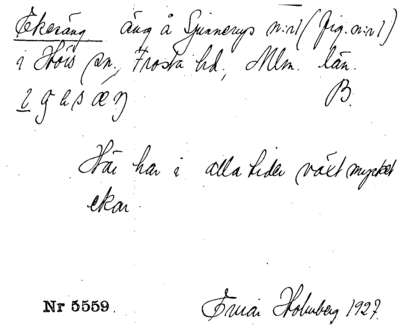 Ekeräng äng å Spinnerup n:r 1 (fig. n:r 1)
i Hörs sn., Frosta hd., Mlm. län.
B.
Här har i alla tider växt mycket
ekar
Nr 5559. Einar Holmberg 1927.